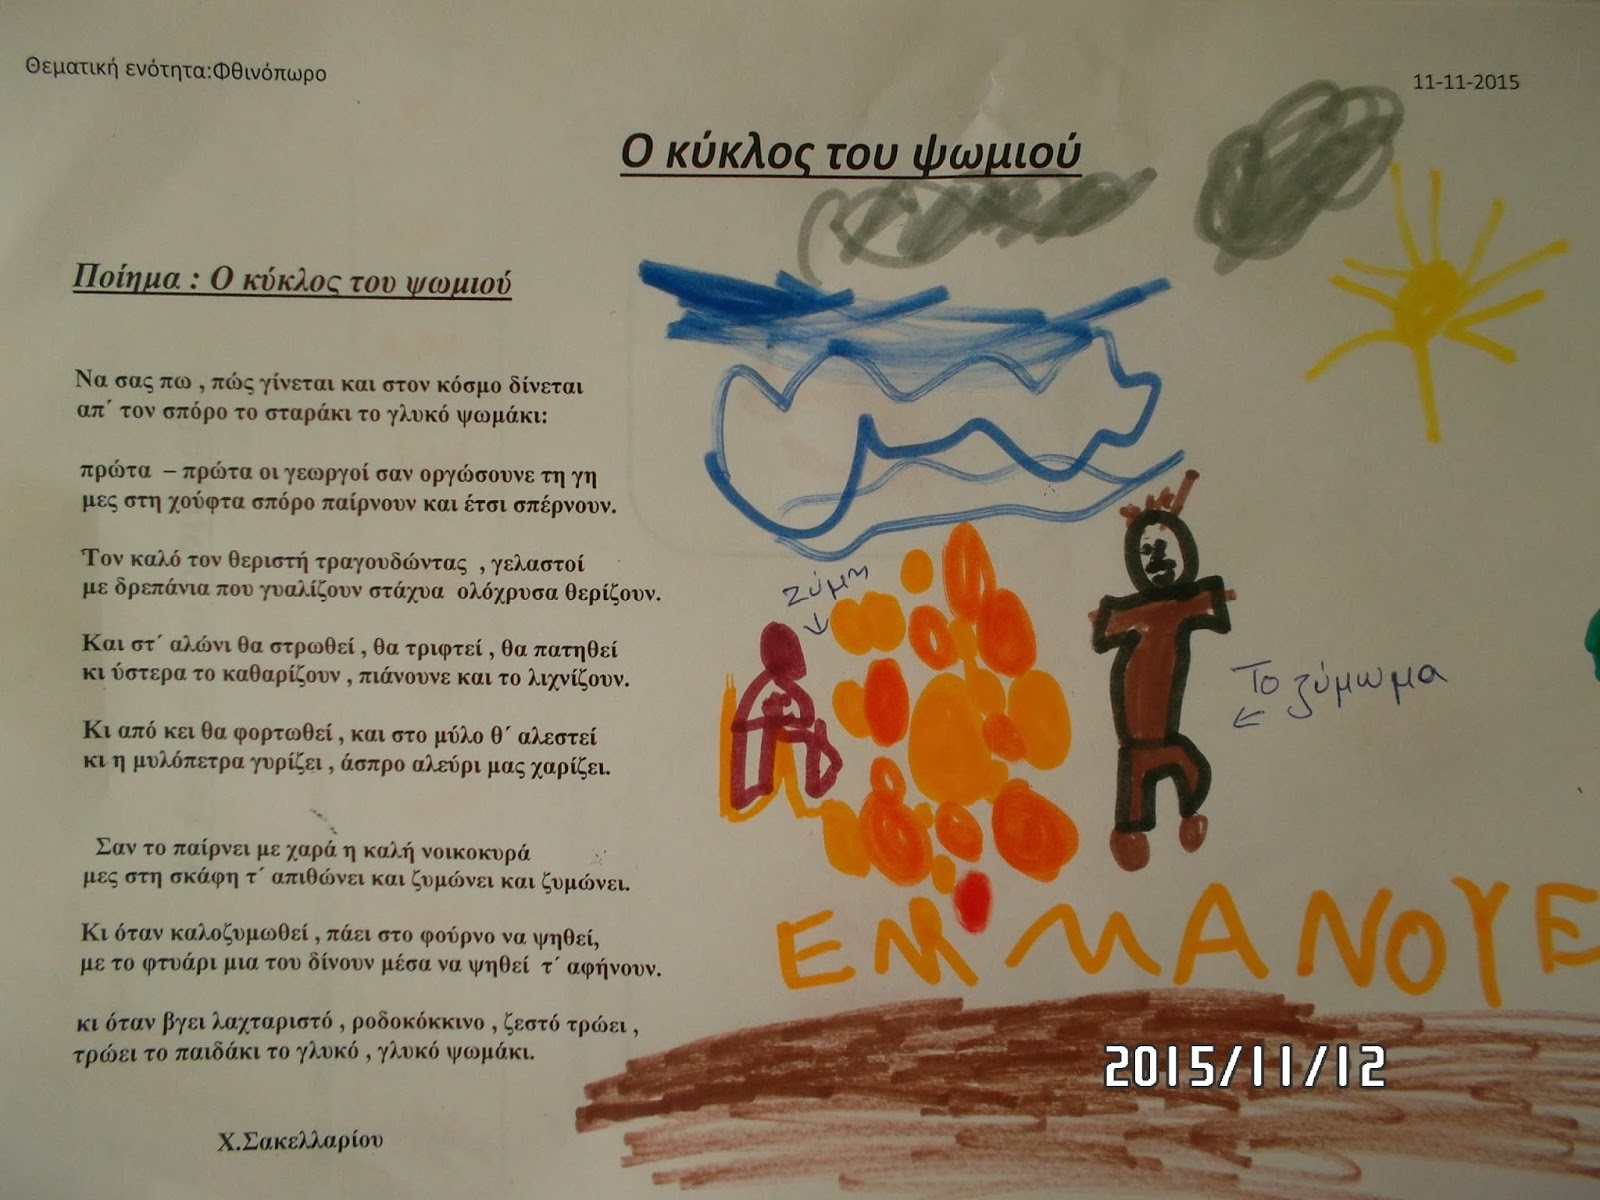 Θεματική ενότητα:Φθινόπωρο
11-11-2015
Ο κύκλος του ψωμιού
Ποίημα : Ο κύκλος του ψωμιού
Να σας πω , πώς γίνεται και στον κόσμο δίνεται
απ΄ τον σπόρο το σταράκι το γλυκό ψωμάκι:
πρώτα – πρώτα οι γεωργοί σαν οργώσουνε τη γη
μες στη χούφτα σπόρο παίρνουν και έτσι σπέρνουν.
Τον καλό τον θεριστή τραγουδώντας , γελαστοί
με δρεπάνια που γυαλίζουν στάχυα ολόχρυσα θερίζουν.
Και στ΄ αλώνι θα στρωθεί , θα τριφτεί , θα πατηθεί
κι ύστερα το καθαρίζουν , πιάνουνε και το λιχνίζουν.
Κι από κει θα φορτωθεί , και στο μύλο θ΄ αλεστεί
κι η μυλόπετρα γυρίζει , άσπρο αλεύρι μας χαρίζει.
Σαν το παίρνει με χαρά η καλή νοικοκυρά
μες στη σκάφη τ΄ απιθώνει και ζυμώνει και ζυμώνει.
Κι όταν καλοζυμωθεί , πάει στο φούρνο να ψηθεί,
με το φτυάρι μια του δίνουν μέσα να ψηθεί τ΄ αφήνουν.
κι όταν βγει λαχταριστό , ροδοκόκκινο , ζεστό τρώει ,
τρώει το παιδάκι το γλυκό , γλυκό ψωμάκι.
Χ.Σακελλαρίου
ζύμη
Το ζύμωμα
ΕΜΜΑΝΟΥΕ
2015/11/12